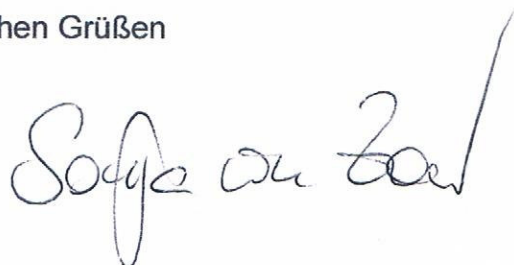 hen Grüßen
Sonja von